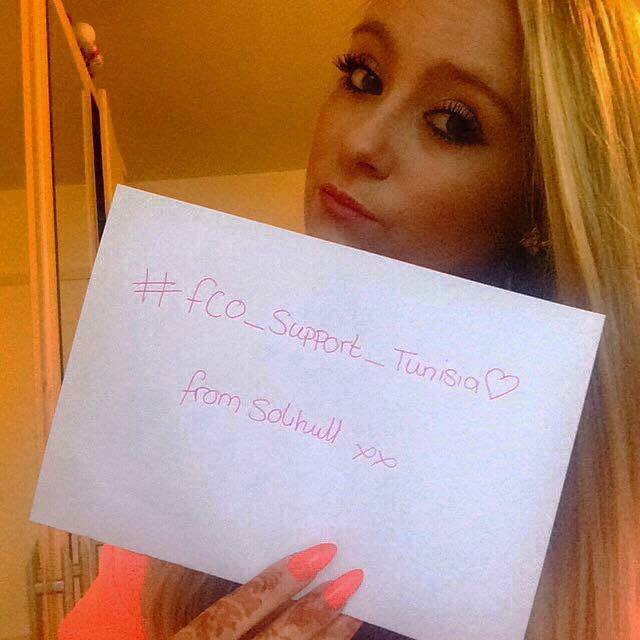 #fCO_Support_Tunisia♡
from Solihull xx